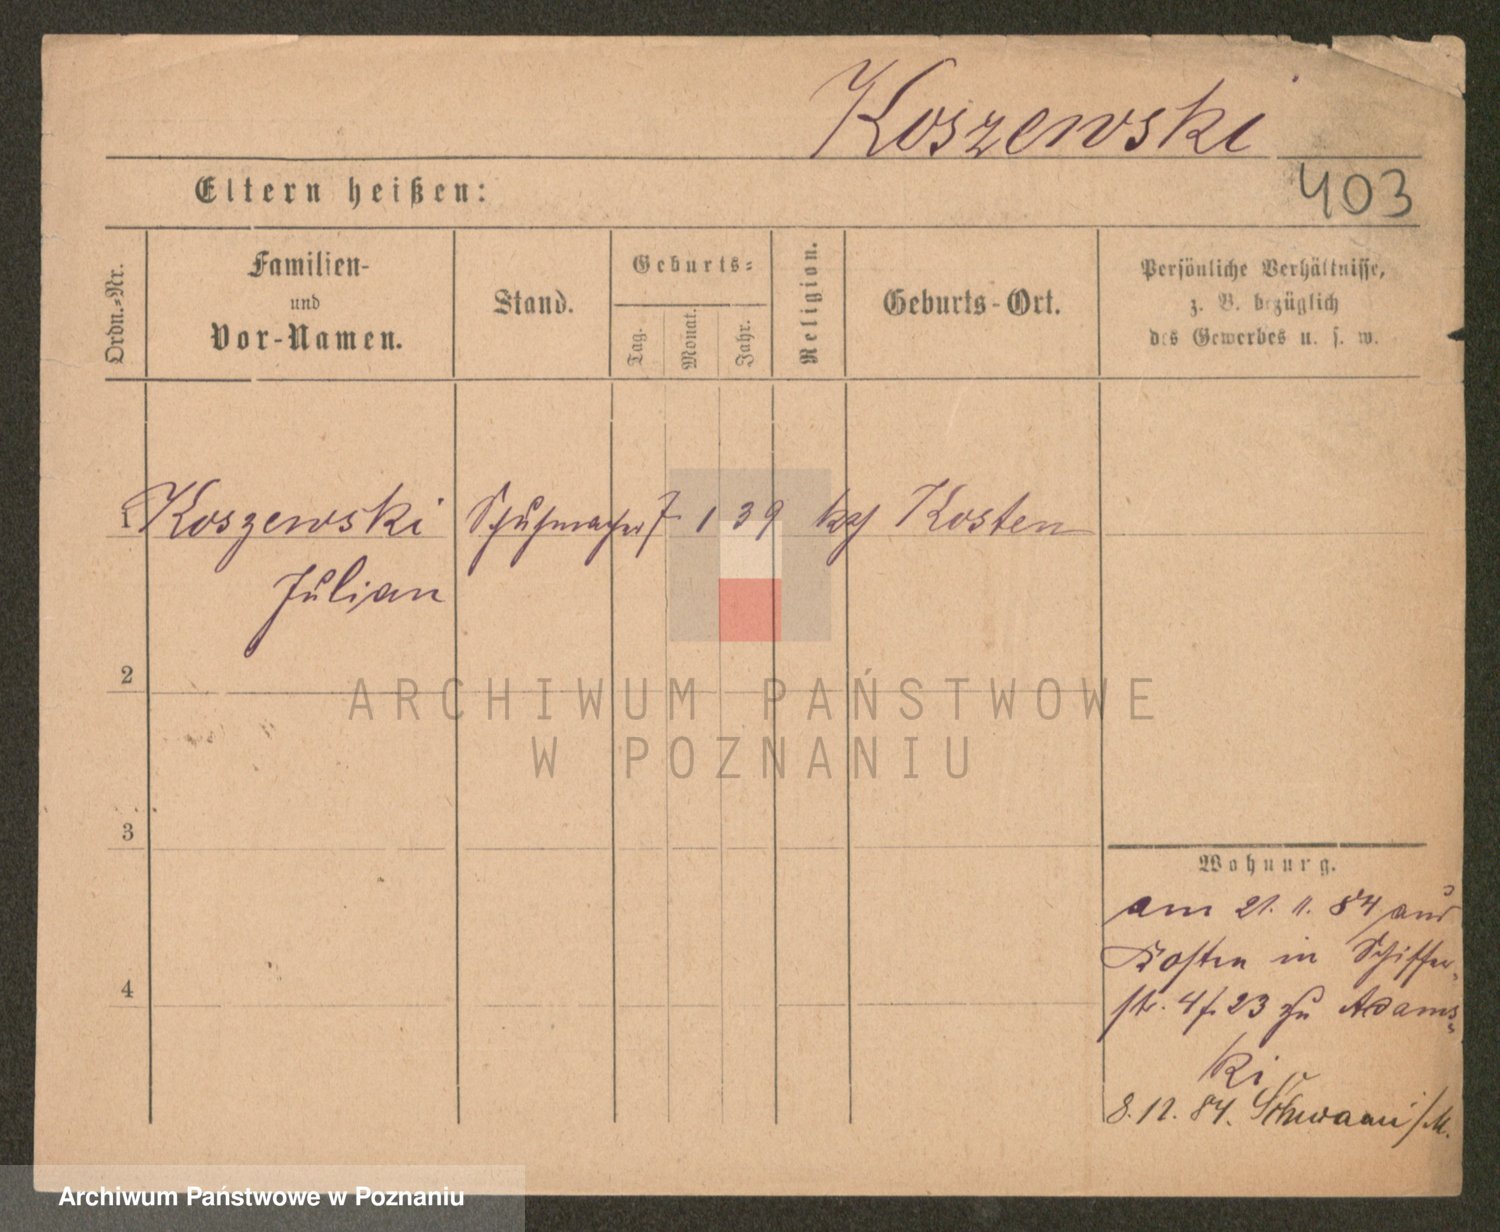 Koszewski
403
Eltern heißen:
Ordn.-Nr.
Familien-
und
Vor-Namen.
Stand.
Geburts-
Tag.
Monat.
Jahr.
Religion.
Geburts-Ort.
Persönliche Verhältnisse,
z. B. bezüglich
des Gewerbes u. s. w.
1 Koszewski Schuhmacher 7 1 39 Kosten
Julian
2
ARCHIWUM PAŃSTWOWE
W POZNANIU
3
Wohnung.
am 21. 11. 84 aus
Kosten in Schiffer-
str. 4 f. 23 zu Adams-
ki
4
8. 12. 84.
Archiwum Państwowe w Poznaniu